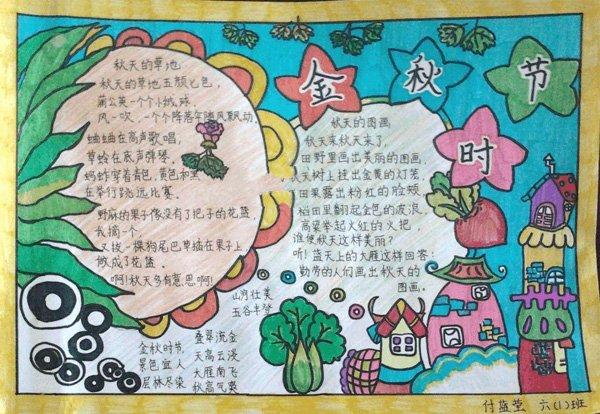 金秋时节
秋天的草地
秋天的草地五颜七色，
蒲公英一个个小绒球，
风一吹，一个个降落伞随风飘动。
蛐蛐在高声歌唱，
草蛉在低声弹琴，
蚂蚱穿着青色、黄色和黑
在举行跳远比赛。
野麻的果子像没有了把子的花篮，
我摘一个，
又拔一棵狗尾巴草插在果子上
做成了花篮。
啊！秋天多有意思啊！
秋天的图画
秋天来秋天来了，
田野里画出美丽的图画，
天树上挂出金黄的灯笼，
田果露出粉红的脸颊
稻田里翻起金色的波浪，
高粱举起火红的火把，
谁使秋天这样美丽？
听！蓝天上的大雁这样回答：
勤劳的人们画出秋天的
图画。
山河壮美
五谷丰登
金秋时节，
景色宜人
层林尽染
叠翠流金
天高云淡
大雁南飞
秋高气爽
付蓝莹 六(1)班